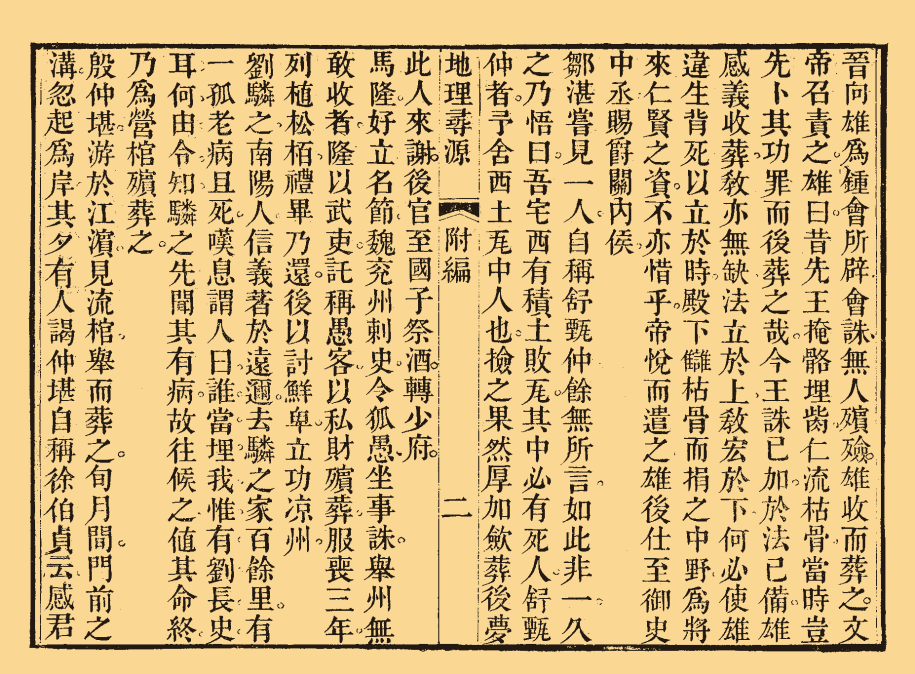 晉向雄爲鍾會所辟會誅無人殯殮雄收而葬之文
帝召責之雄曰昔先王掩骼埋胔仁流枯骨當時豈
先卜其功罪而後葬之哉今王誅已加於法已備雄
感義收葬敎亦無缺法立於上敎宏於下何必使雄
違生背死以立於時殿下讎枯骨而捐之中野爲將
來仁賢之資不亦惜乎帝悅而遣之雄後仕至御史
中丞賜爵關內侯
鄒湛嘗見一人自稱舒甄仲餘無所言如此非一久
之乃悟曰吾宅西有積土敗瓦其中必有死人舒甄
仲者予舍西土瓦中人也撿之果然厚加斂葬後夢
地理尋源 附編 二
此人來謝後官至國子祭酒轉少府
馬隆好立名節魏兖州刺史令狐愚坐事誅舉州無
敢收者隆以武吏託稱愚客以私財殯葬服喪三年
列植松栢禮畢乃還後以討鮮卑立功凉州
劉驎之南陽人信義著於遠邇去驎之家百餘里有
一孤老病且死嘆息謂人曰誰當埋我惟有劉長史
耳何由令知驎之先聞其有病故往候之値其命終
乃爲營棺殯葬之
殷仲堪游於江濱見流棺舉而葬之旬月間門前之
溝忽起爲岸其夕有人謁仲堪自稱徐伯貞云感君